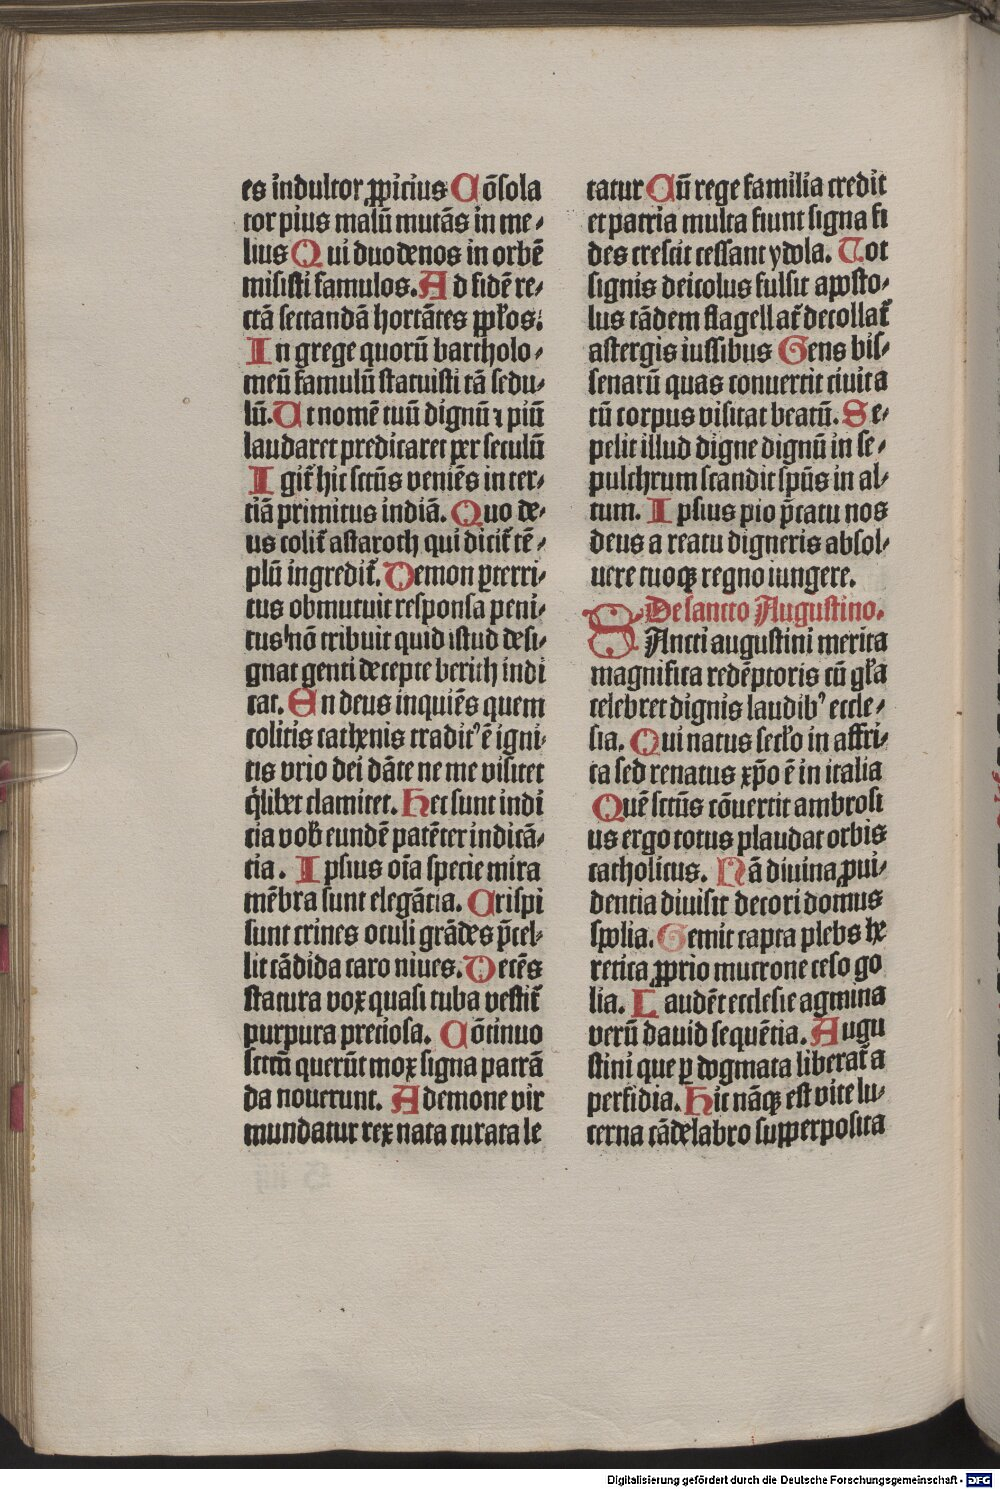 es indultor ꝓpicius Cõsola
tor pius malũ mutãs in me⸗
lius Qui duodenos in orbẽ
misisti famulos. Ad fidẽ re⸗
ctã sectandã hortãtes pp̄łos:
In grege quorũ bartholo⸗
meũ famulũ statuisti tã sedu⸗
lũ. Ut nomẽ tuũ dignũ ⁊ piũ
laudaret predicaret per seculũ
Igit᷑ hic sctũs veniẽs in ter⸗
ciã primitus indiã. Quo de⸗
us colit᷑ astaroth qui dicit᷑ tẽ⸗
plũ ingredit᷑. Demon ꝑterri⸗
tus obmutuit responsa peni⸗
tus nõ tribuit quid istud desi⸗
gnat genti decepte berith indi
cat. En deus inquiẽs quem
colitis cathenis tradit᷒ ẽ igni⸗
tis vrio dei dãte ne me visitet
q̃libet clamitet. Hec sunt indi
cia vob̃ eundẽ patẽter indicã⸗
cia. Ipsius oĩa specie mira
mẽbra sunt elegãtia. Crispi
sunt crines oculi grãdes p̃cel⸗
lit cãdida caro niues. Decẽs
statura vox quasi tuba vestit᷑
purpura preciosa. Cõtinuo
sctm̃ querũt mox signa patrã
da nouerunt. A demone vir
mundatur rex nata curata le
tatur Cũ rege familia credit
et patria multa fiunt signa fi
des crescit cessant ydola. Tot
signis deicolus fulsit aposto⸗
lus tãdem flagellat᷑ decollat᷑
astergis iussibus Gens bis⸗
senarũ quas conuertit ciuita
tũ corpus visitat beatũ. Se⸗
pelit illud digne dignũ in se⸗
pulchrum scandit spũs in al⸗
tum. Ipsius pio p̃catu nos
deus a reatu digneris absol⸗
uere tuoqꝫ regno iungere.
De sancto Augustino.
SAncti augustini merita
magnifica redẽptoris cũ gła
celebret dignis laudib᷒ eccle⸗
sia. Qui natus secło in affri⸗
ca sed renatus xp̃o ẽ in italia
Quẽ sctũs cõuertit ambrosi
us ergo totus plaudat orbis
catholicus. Nã diuina ꝓui⸗
dentia diuisit decori domus
spolia. Gemit capta plebs he
retica ꝓprio mucrone ceso go
lia. Laudẽt ecclesie agmina
verũ dauid sequẽtia. Augu
stini que ꝑ dogmata liberat᷑ a
perfidia. Hic nãqꝫ est vite lu⸗
cerna cãdelabro supperposita
Digitalisierung gefördert durch die Deutsche Forschungsgemeinschaft - DFG